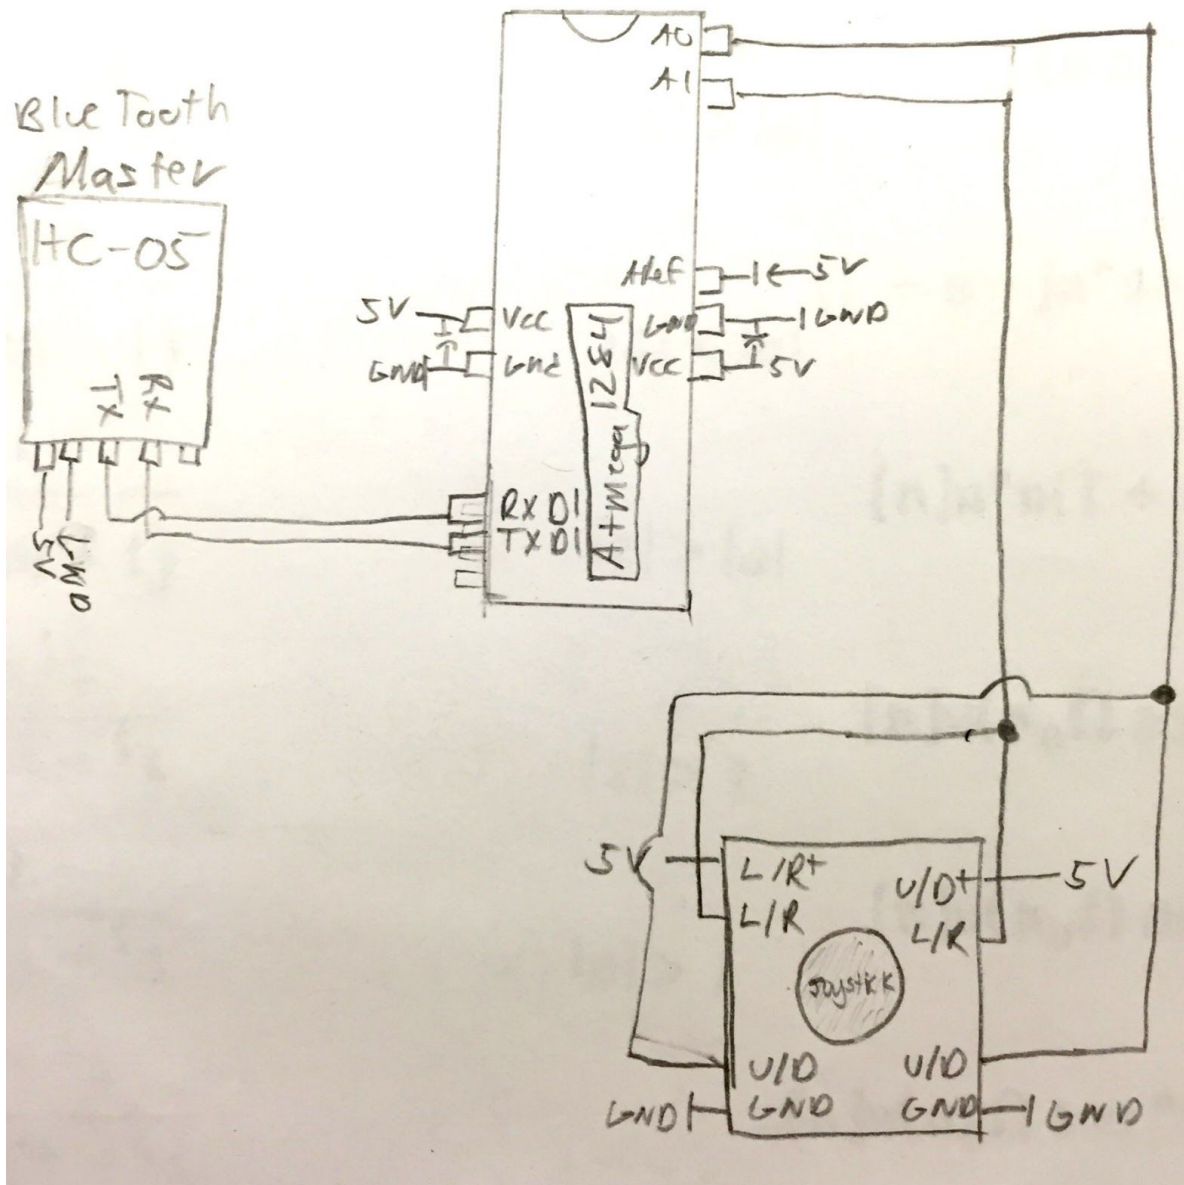 Blue Tooth
Master
HC-05
Tx
Rx
5V
GND
A0
A1
ARef
5V
5V
Vcc
GND
GND
GND
Gnd
VCC
5V
AtMega 1284
RXD1
TXD1
5V
L/R+
U/D+
5V
L/R
L/R
Joystick
U/D
U/D
GND
GND
GND
GND